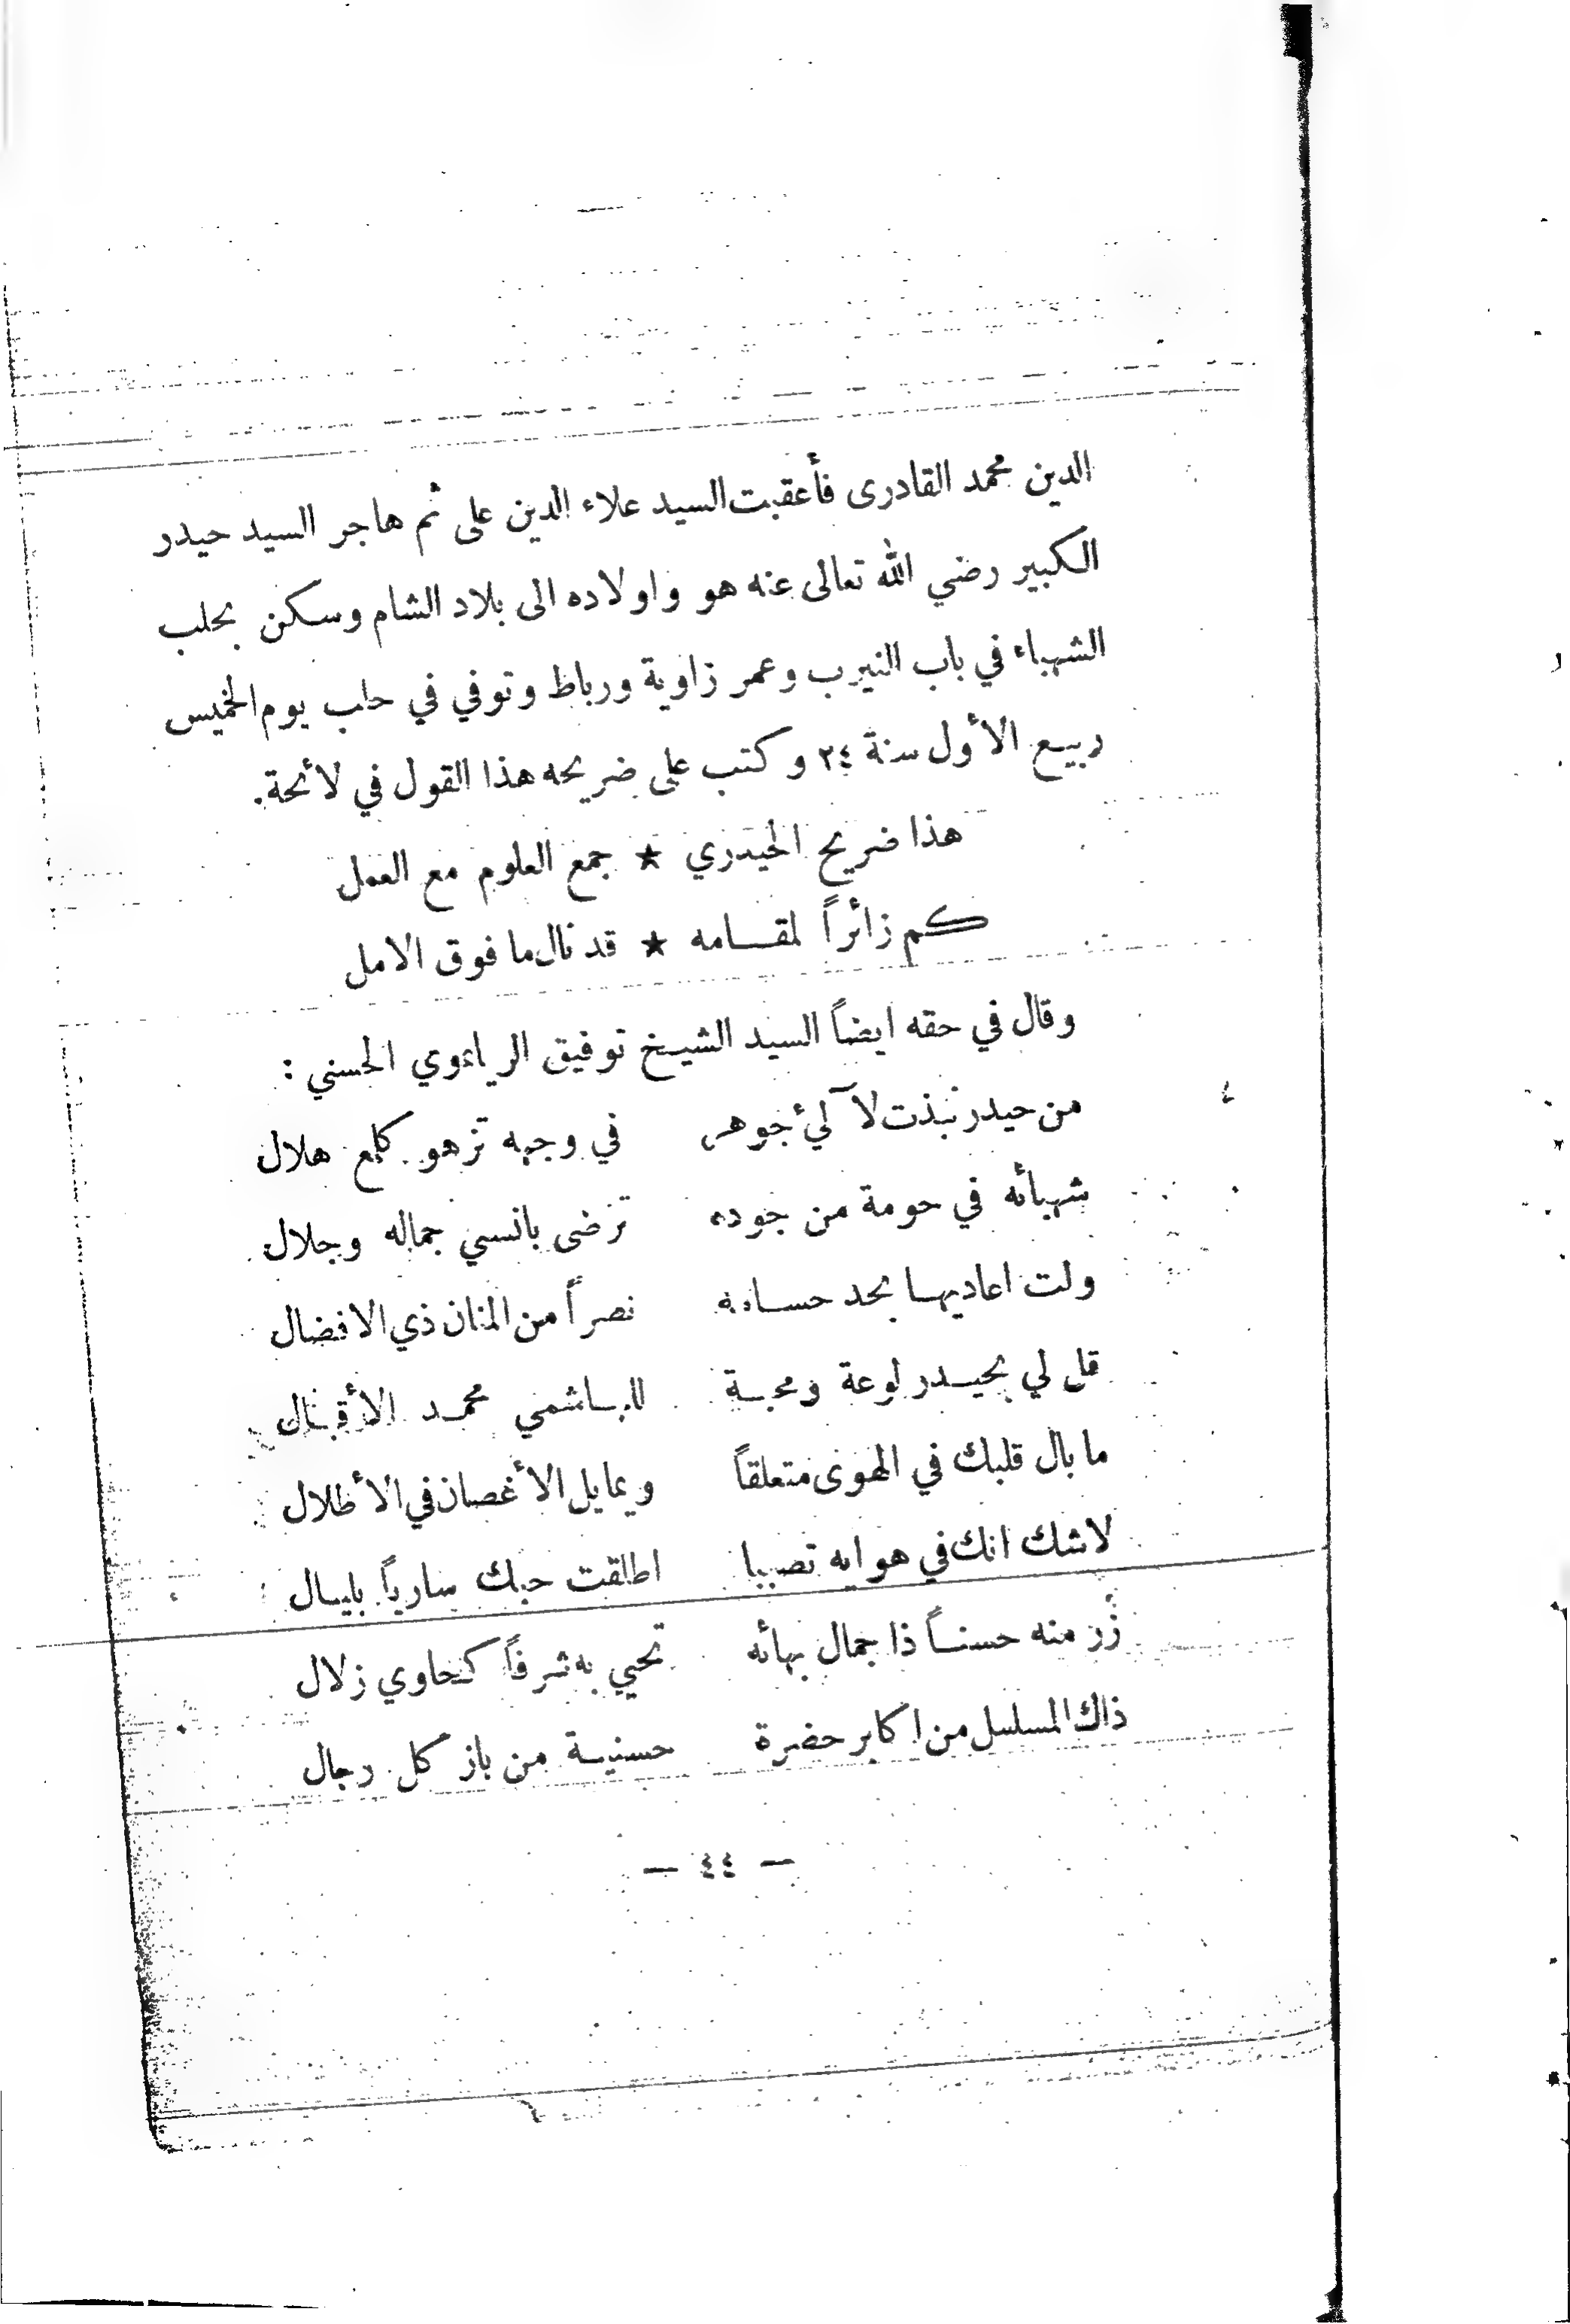 الدين محمد القادرى فأعقبت السيد علاء الدين على ثم هاجر السيد حيدر
الكبير رضي الله تعالى عنه هو واولاده الى بلاد الشام وسكن بحلب
الشهباء في باب النيرب وعمر زاوية ورباط وتوفي في حلب يوم الخميس
ربيع الأول سنة ٢٤ وكتب على ضريحه هذا القول في لائحة.
هذا ضريح الحيدري ★ جمع العلوم مع العمل
كم زائراً لمقامه ★ قد نال ما فوق الامل
وقال في حقه ايضاً السيد الشيخ توفيق الحسني :
من حيدر نبذت لآلئ جوهر في وجهه تزهو كلمع هلال
شهبائه في حومة من جوده ترضى بانسي جماله وجلال
ولت اعاديها بحد حسامه نصراً من المنان ذي الافضال
قل لي بحيدر لوعة ومحبة للهاشمي محمد الأقبال
ما بال قلبك في الهوى متعلقاً ويمايل الأغصان في الأطلال
لاشك انك في هوايه تصببا اطلقت حبك سارياً بليال
زُر منه حسناً ذا جمال بهائه تحيي به شرفاً كحاوي زلال
ذاك المسلسل من اكابر حضرة حسنية من باز كل رجال
— ٤٤ —